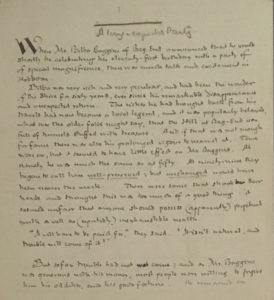 A long-expected Party
When Mr. Bilbo Baggins of Bag-End announced that he would
shortly be celebrating his eleventy-first birthday with a party
of special magnificence, there was much talk and excitement in
Hobbiton.
Bilbo was very rich and very peculiar, and had been the wonder
of the Shire for sixty years, ever since his remarkable disappearance
and unexpected return. The riches he had brought back from his
travels had now become a local legend, and it was popularly believed,
what ever the older folk might say, that the Hill at Bag-End was
full of tunnels stuffed with treasure. And if that was not enough
for fame, there was also his prolonged vigour to marvel at. Time
wore on, but it seemed to have little effect on Mr. Baggins. At
ninety he was much the same as at fifty. At ninety-nine they
began to call him well-preserved; but unchanged would have
been nearer the mark. There were some that shook their
heads and thought this was too much of a good thing; it
seemed unfair that anyone should possess (apparently) perpetual
youth as well as (reputedly) inexhaustible wealth.
"It will have to be paid for," they said. "It isn't natural, and
trouble will come of it!"
But so far trouble had not come; and as Mr. Baggins
was generous with his money, most people were willing to forgive
him his oddities and his good fortune. He remained on